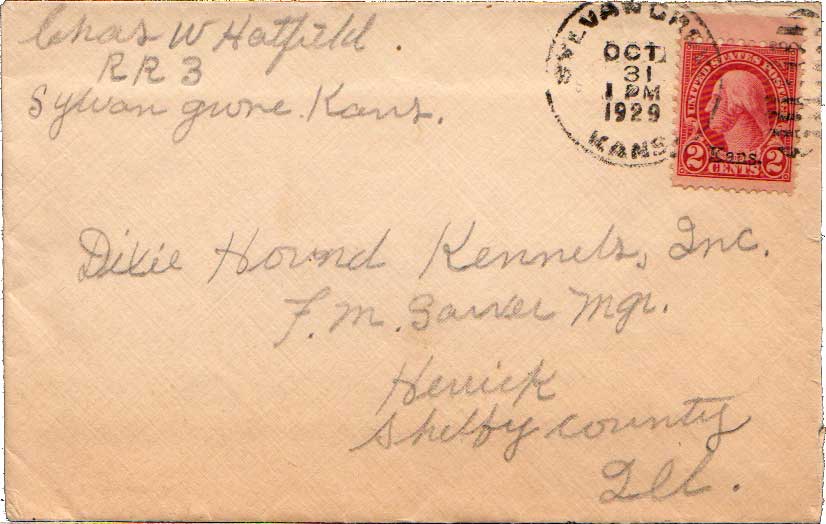 Chas W Hatfield.
RR 3
Sylvan grove. Kans.
SYLVAN GRO
OCT
31
1 PM
1929
KANS.
UNITED STATES POSTAGE
Kans.
2 CENTS 2
Dixie Hound Kennels, Inc.
F. M. Sarver Mgr.
Herrick
Shelby county
Ill.